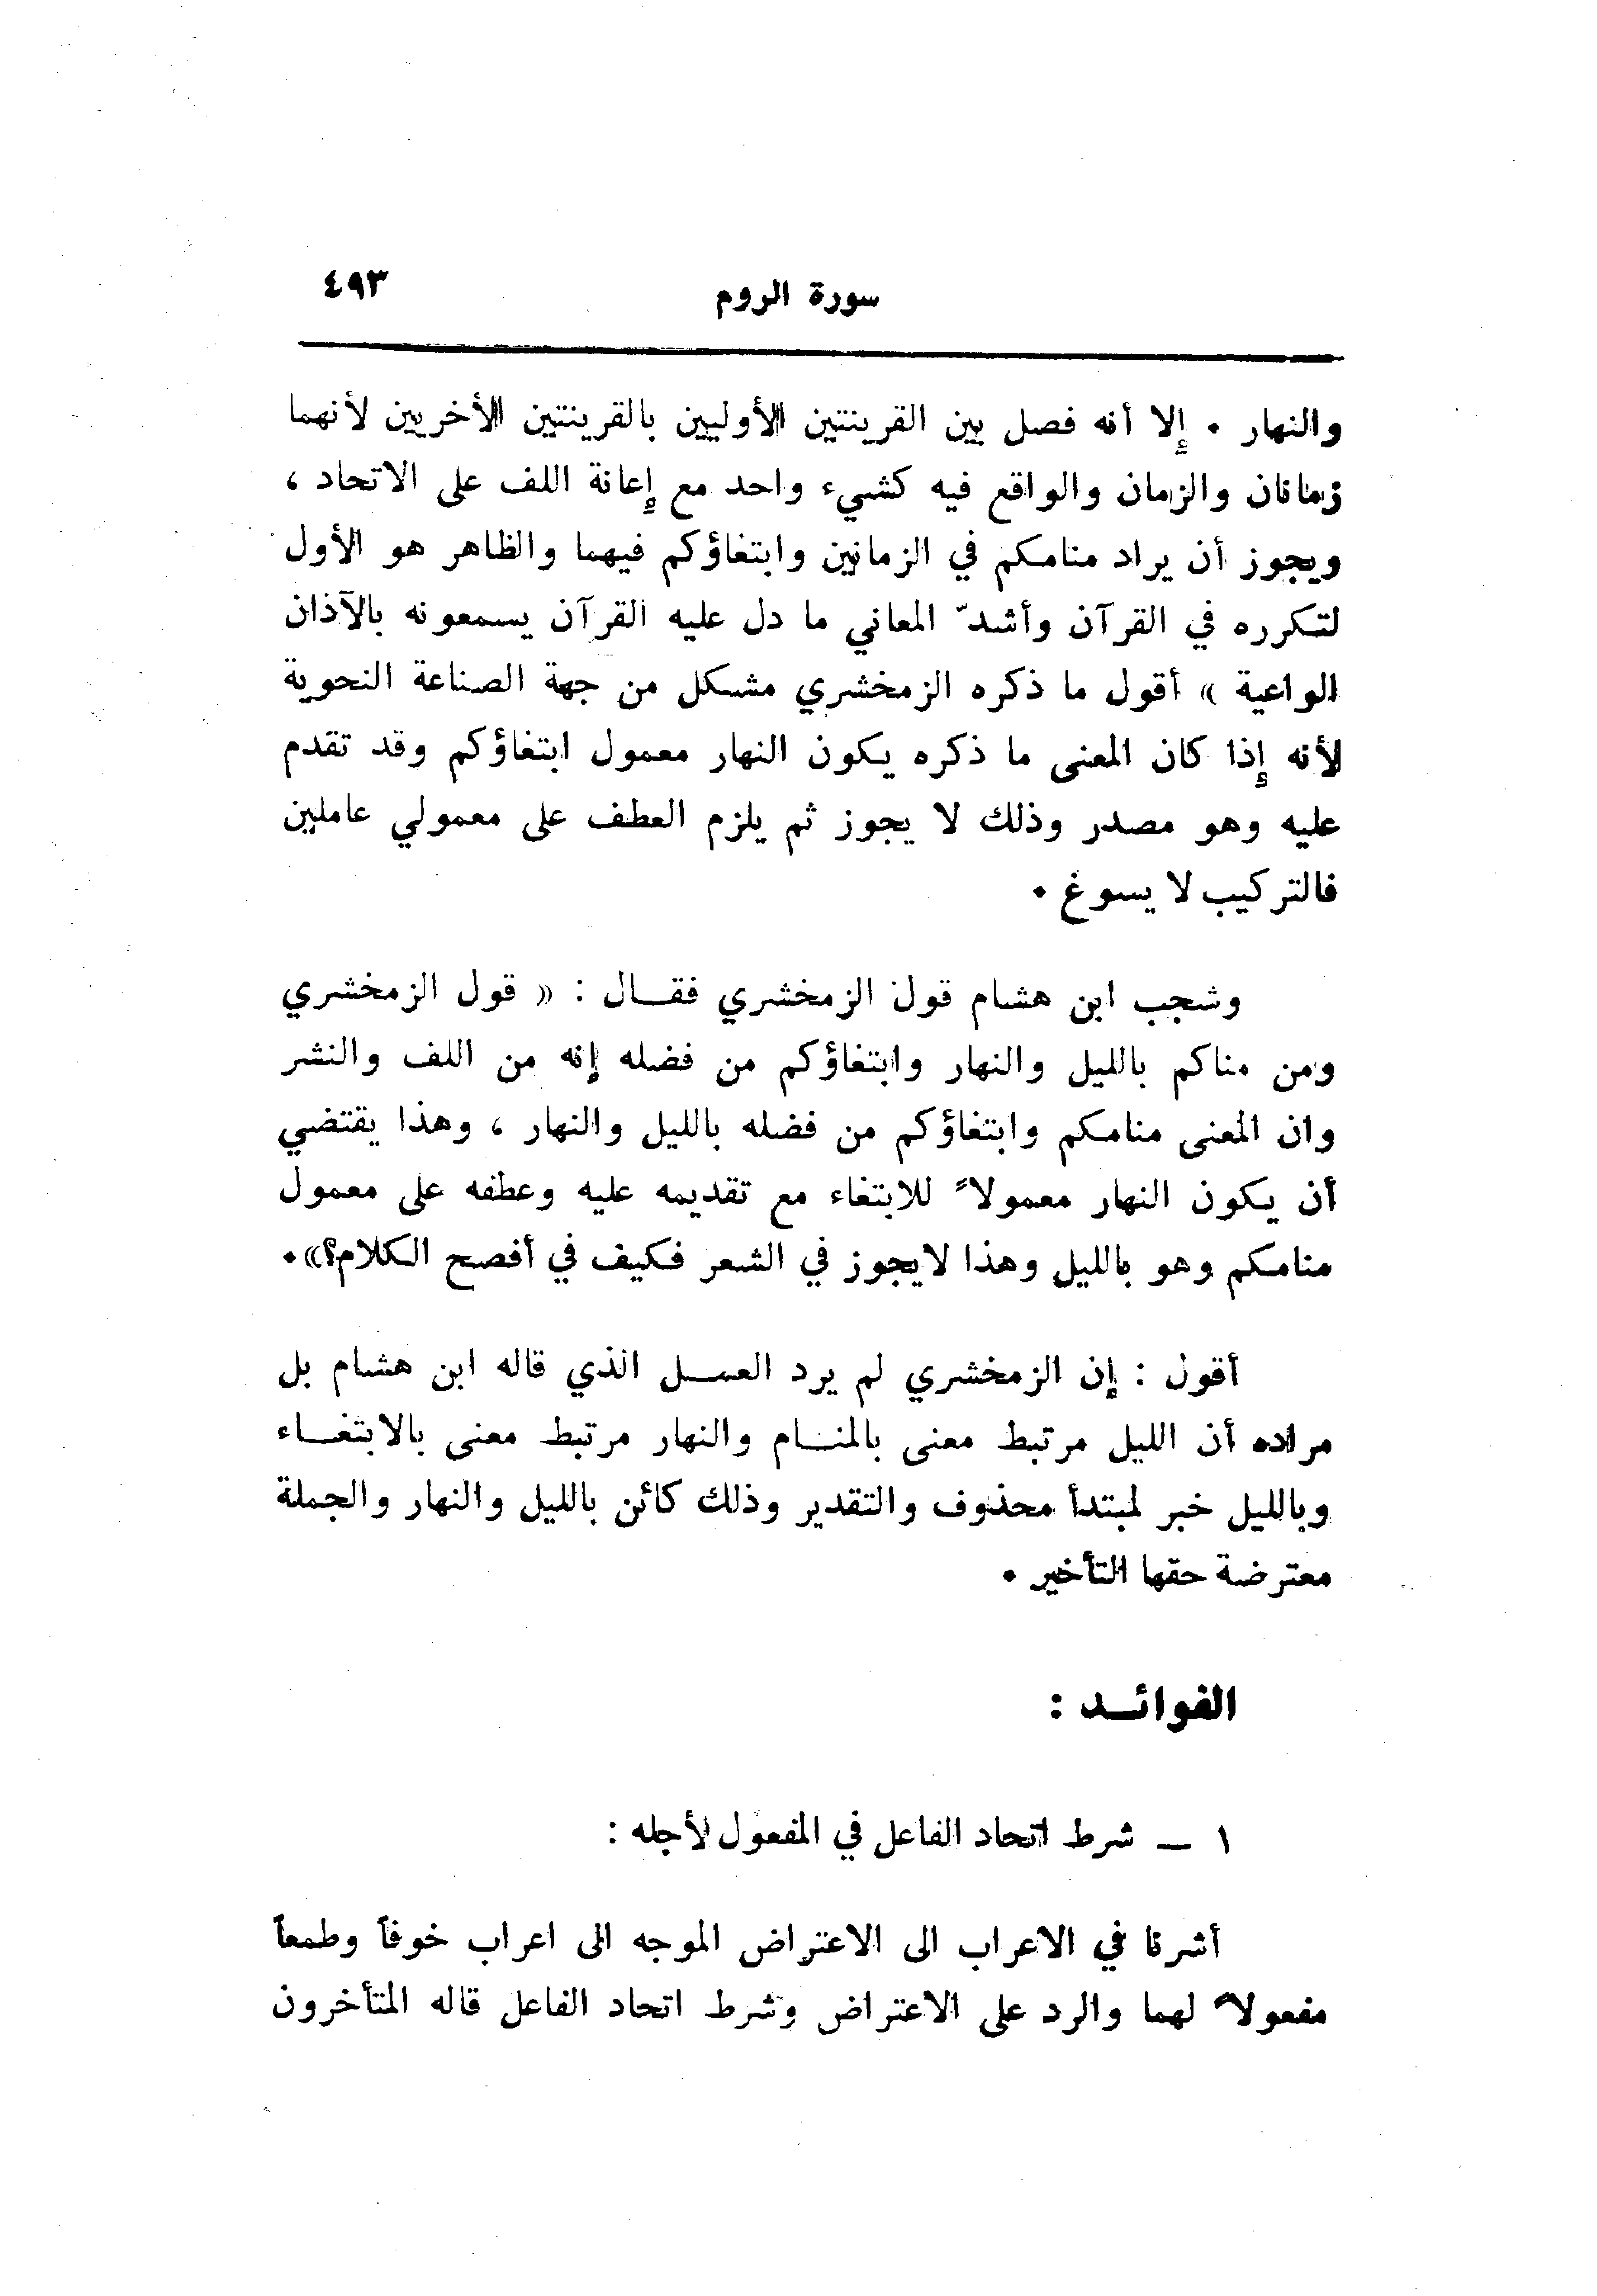 سورة الروم ٤٩٣
والنهار . إلا أنه فصل بين القرينتين الأوليين بالقرينتين الأخريين لأنهما
زمانان والزمان والواقع فيه كشيء واحد مع إعانة اللف على الاتحاد ،
ويجوز أن يراد منامكم في الزمانين وابتغاؤكم فيهما والظاهر هو الأول
لتكرره في القرآن وأشدّ المعاني ما دل عليه القرآن يسمعونه بالآذان
الواعية » أقول ما ذكره الزمخشري مشكل من جهة الصناعة النحوية
لأنه إذا كان المعنى ما ذكره يكون النهار معمول ابتغاؤكم وقد تقدم
عليه وهو مصدر وذلك لا يجوز ثم يلزم العطف على معمولي عاملين
فالتركيب لا يسوغ .
وشجب ابن هشام قول الزمخشري فقـــال : « قول الزمخشري
ومن مناكم بالليل والنهار وابتغاؤكم من فضله إنه من اللف والنشر
وان المعنى منامكم وابتغاؤكم من فضله بالليل والنهار ، وهذا يقتضي
أن يكون النهار معمولاً للابتغاء مع تقديمه عليه وعطفه على معمول
منامكم وهو بالليل وهذا لايجوز في الشعر فكيف في أفصح الكلام؟».
أقول : إن الزمخشري لم يرد العمـــل الذي قاله ابن هشام بل
مراده أن الليل مرتبط معنى بالمنـــام والنهار مرتبط معنى بالابتغـــاء
وبالليل خبر لمبتدأ محذوف والتقدير وذلك كائن بالليل والنهار والجملة
معترضة حقها التأخير .
الفوائـــد :
١ ــ شرط اتحاد الفاعل في المفعول لأجله :
أشرنا في الاعراب الى الاعتراض الموجه الى اعراب خوفاً وطمعاً
مفعولاً لهما والرد على الاعتراض وشرط اتحاد الفاعل قاله المتأخرون